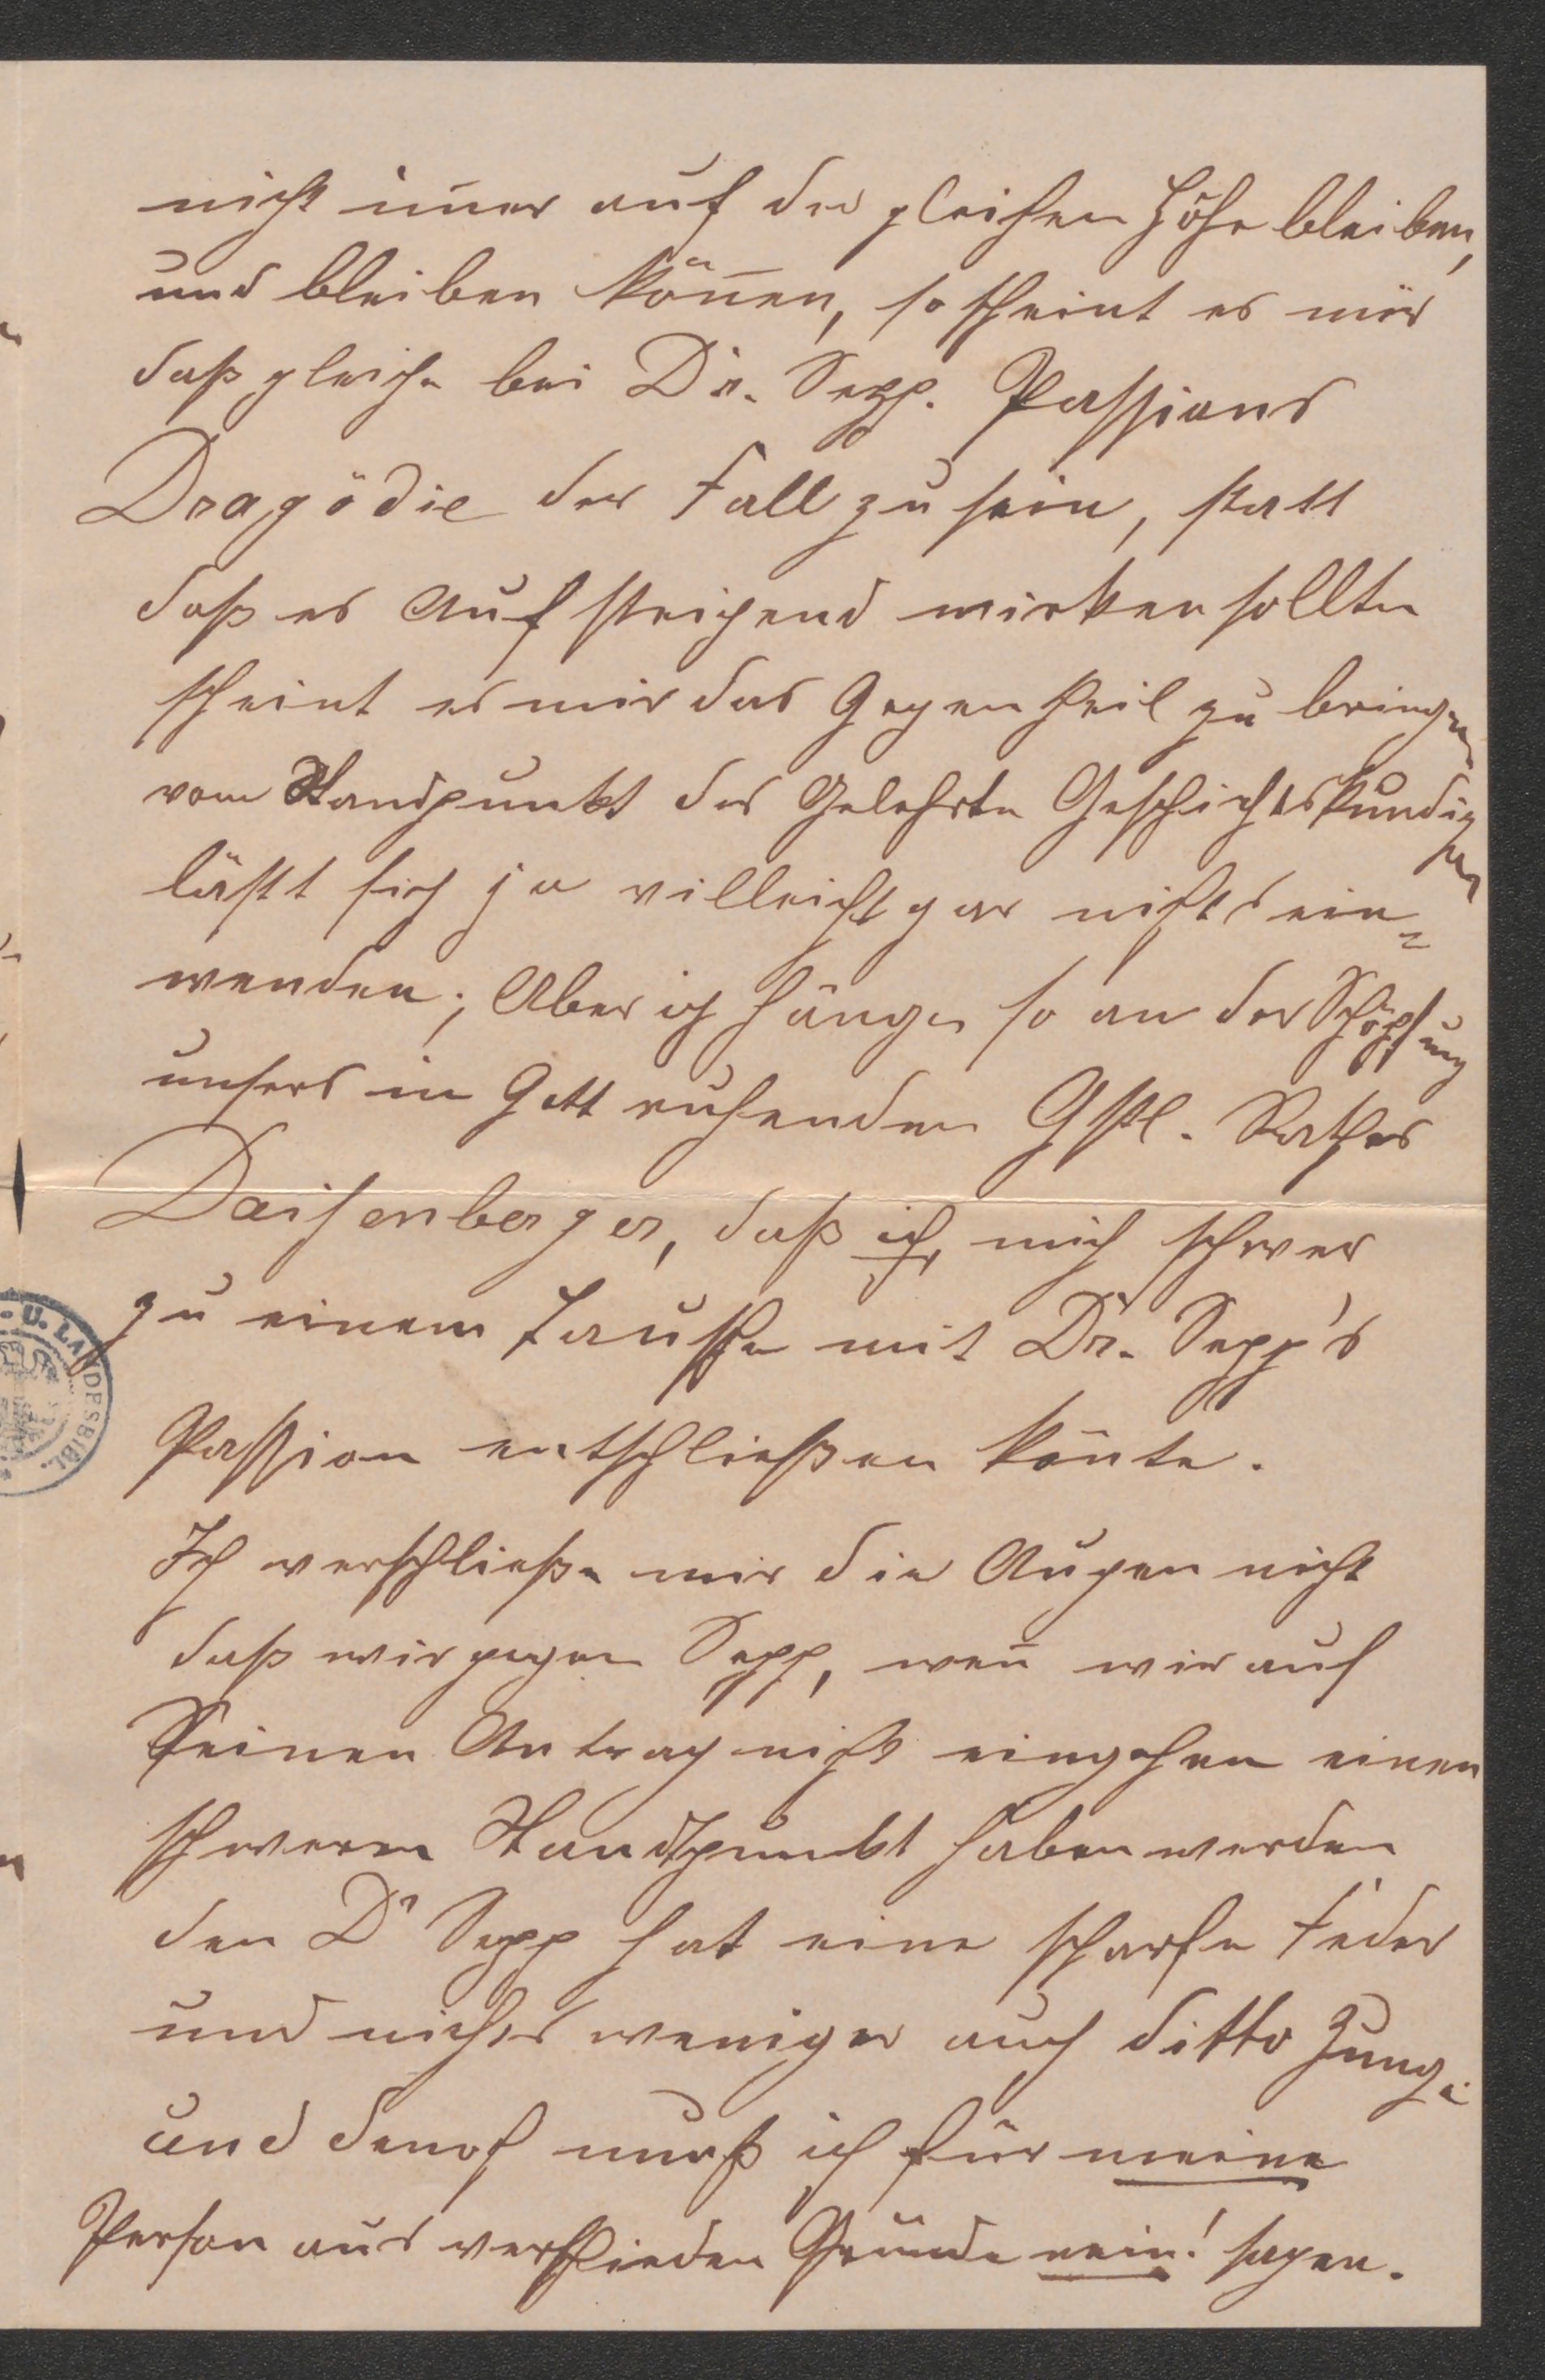 nicht im̄er auf der gleichen Höhe bleiben,
und bleiben kön̄en, so scheint es mir
daß gleiche bei Dr. Sepp. Passions
Dragödie der Fall zu sein, statt
daß es Aufsteigend wirken sollte
scheint es mir das Gegentheil zu bringen
vom Standpunkt des Gelehrten Geschichtskundigen
läßt sich ja villeicht gar nichts ein=
wenden; Aber ich hänge so an der Schöpfung
unsers in Gott ruhenden Gstl. Rathes
Daisenberger, daß ich, mich schwer
zu einem Tausche mit Dr. Sepp's
Passion entschließen kön̄te.
Ich verschließe mir die Augen nicht
daß wir gegen Sepp, wen̄ wir auf
Seinen Antrag nicht eingehen einen
schweren Standtpunkt haben werden
den Dr Sepp hat eine scharfe Feder
und nichts weniger auch ditto Zunge
und den̄och muß ich für meine
Person aus verschieden Gründe nein! sagen.
U. LANDESBIBL.